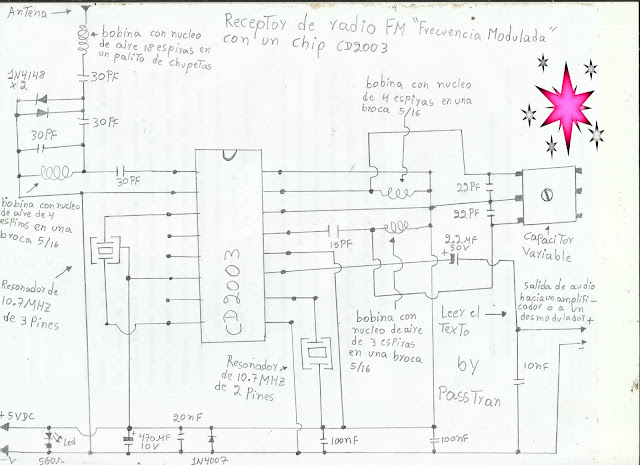 Antena
Receptor de radio FM "Frecuencia Modulada"
con un chip CD2003
bobina con nucleo
de aire 18 espiras en
un palito de chupetas
1N4148
x2
30PF
30PF
30PF
30PF
bobina con nucleo
de aire de 4
espiras en una
broca 5/16
Resonador de
10.7MHZ
de 3 Pines
CD2003
bobina con nucleo
de 4 espiras en una
broca 5/16
22PF
22PF
Capacitor
Variable
15PF
2,2MF
50V
+
bobina con
nucleo de aire
de 3 espiras
en una broca
5/16
Resonador
de 10.7MHZ
de 2 Pines
Leer el
Texto
by
PassTran
salida de audio
hacia un amplifi-
cador o a un
desmodulador
+
-
10nF
+5VDC
Led
560Ω
-V
+
470MF
10V
20nF
1N4007
100nF
100nF